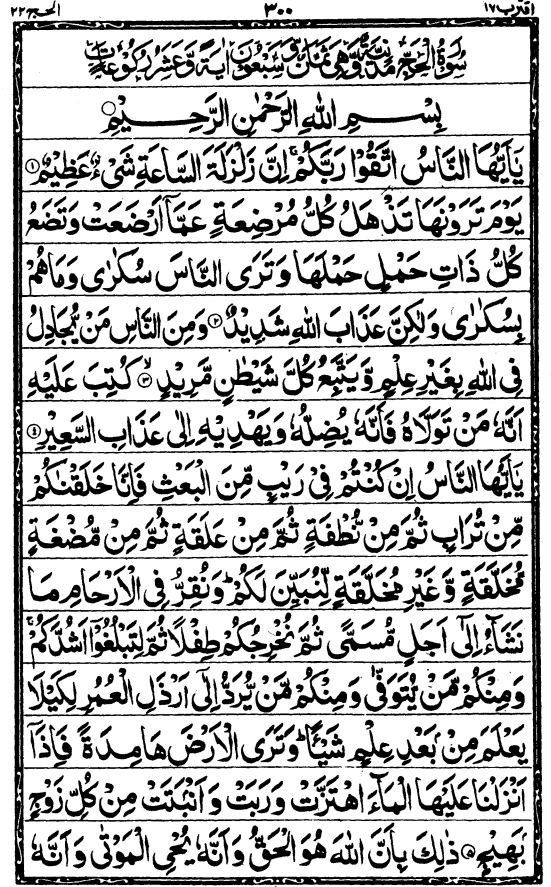 اقترب ١٧ ٣٠٠ الحج ٢٢
سُوْرَةُ الْحَجِّ مَدَنِيَّةٌ وَّهِيَ ثَمَانٌ وَّسَبْعُوْنَ اٰيَةً وَّعَشَرُ رُكُوْعَاتٍ
بِسْمِ اللّٰهِ الرَّحْمٰنِ الرَّحِيْمِ
يٰۤاَيُّهَا النَّاسُ اتَّقُوْا رَبَّكُمْ ۚ اِنَّ زَلْزَلَةَ السَّاعَةِ شَيْءٌ عَظِيْمٌ ۝١
يَوْمَ تَرَوْنَهَا تَذْهَلُ كُلُّ مُرْضِعَةٍ عَمَّاۤ اَرْضَعَتْ وَتَضَعُ
كُلُّ ذَاتِ حَمْلٍ حَمْلَهَا وَتَرَى النَّاسَ سُكٰرٰى وَمَا هُمْ
بِسُكٰرٰى وَلٰكِنَّ عَذَابَ اللّٰهِ شَدِيْدٌ ۝٢ وَمِنَ النَّاسِ مَنْ يُّجَادِلُ
فِي اللّٰهِ بِغَيْرِ عِلْمٍ وَّيَتَّبِعُ كُلَّ شَيْطٰنٍ مَّرِيْدٍ ۝٣ۙ كُتِبَ عَلَيْهِ
اَنَّهٗ مَنْ تَوَلَّاهُ فَاَنَّهٗ يُضِلُّهٗ وَيَهْدِيْهِ اِلٰى عَذَابِ السَّعِيْرِ ۝٤
يٰۤاَيُّهَا النَّاسُ اِنْ كُنْتُمْ فِيْ رَيْبٍ مِّنَ الْبَعْثِ فَاِنَّا خَلَقْنٰكُمْ
مِّنْ تُرَابٍ ثُمَّ مِنْ نُّطْفَةٍ ثُمَّ مِنْ عَلَقَةٍ ثُمَّ مِنْ مُّضْغَةٍ
مُّخَلَّقَةٍ وَّغَيْرِ مُخَلَّقَةٍ لِّنُبَيِّنَ لَكُمْ ؕ وَنُقِرُّ فِي الْاَرْحَامِ مَا
نَشَآءُ اِلٰۤى اَجَلٍ مُّسَمًّى ثُمَّ نُخْرِجُكُمْ طِفْلًا ثُمَّ لِتَبْلُغُوْۤا اَشُدَّكُمْ ۚ
وَمِنْكُمْ مَّنْ يُّتَوَفّٰى وَمِنْكُمْ مَّنْ يُّرَدُّ اِلٰۤى اَرْذَلِ الْعُمُرِ لِكَيْلَا
يَعْلَمَ مِنْۢ بَعْدِ عِلْمٍ شَيْـًٔا ؕ وَتَرَى الْاَرْضَ هَامِدَةً فَاِذَاۤ
اَنْزَلْنَا عَلَيْهَا الْمَآءَ اهْتَزَّتْ وَرَبَتْ وَاَنْۢبَتَتْ مِنْ كُلِّ زَوْجٍۭ
بَهِيْجٍ ۝٥ ذٰلِكَ بِاَنَّ اللّٰهَ هُوَ الْحَقُّ وَاَنَّهٗ يُحْيِ الْمَوْتٰى وَاَنَّهٗ